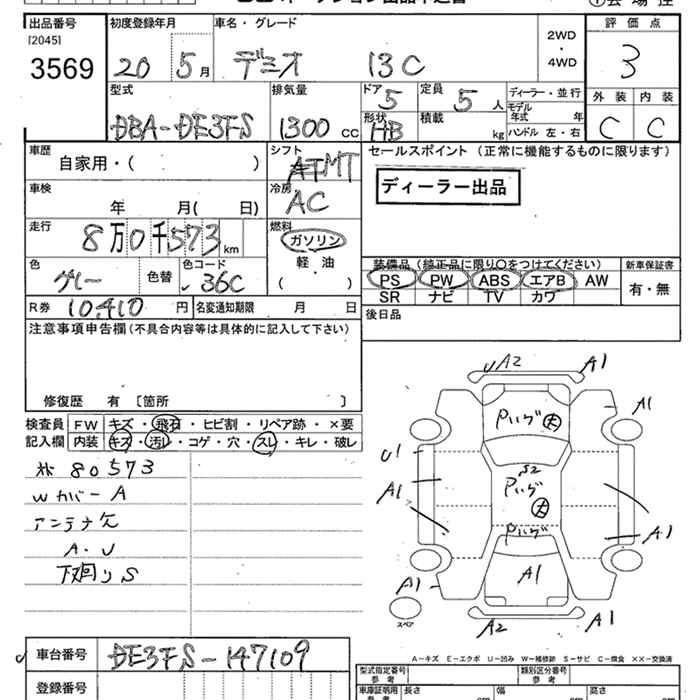 出品番号 初度登録年月 車名・グレード 評価点
[2045]
3569 20 5月 デミオ 13C 2WD・4WD 3
型式 排気量 ドア 5 定員 5人 ディーラー・並行 外装 内装
モデル年式 年
DBA-DE3FS 1300cc 形状 HB 積載 kg ハンドル 左・右 C C
車歴 シフト セールスポイント (正常に機能するものに限ります)
自家用・( ) MT
ディーラー出品
車検 冷房
年 月( 日) AC
走行 燃料
8万0千573km ガソリン
軽・油
( )
装備品 (純正品に限り○をつけてください) 新車保証書
色 色替 色コード PS PW ABS エアB AW 有・無
グレー 36C SR ナビ TV カワ
R券 10,410円 名変通知期限 月 日 後日品
注意事項申告欄 (不具合内容等は具体的に記入して下さい)
修復歴 有 〔箇所 〕
検査員 FW キズ・飛石・ヒビ割・リペア跡・×要
記入欄 内装 キズ・汚し・コゲ・穴・スレ・キレ・破レ
80573
Wカバー A
アンテナ欠
A・U
下廻りS
UA2 A1
A1
Pいグ 大
U1
S2
A1 Pいグ 大
Pいグ A1
A1 A1
スペア A2 A1
A-キズ E-エクボ U-凹み W-補修跡 S-サビ C-腐食 ××-交換済
車台番号 DE3FS-147109
型式指定番号 参考 類別区分番号 参考
登録番号 車庫証明用 参考 長さ cm 幅 cm 高さ cm